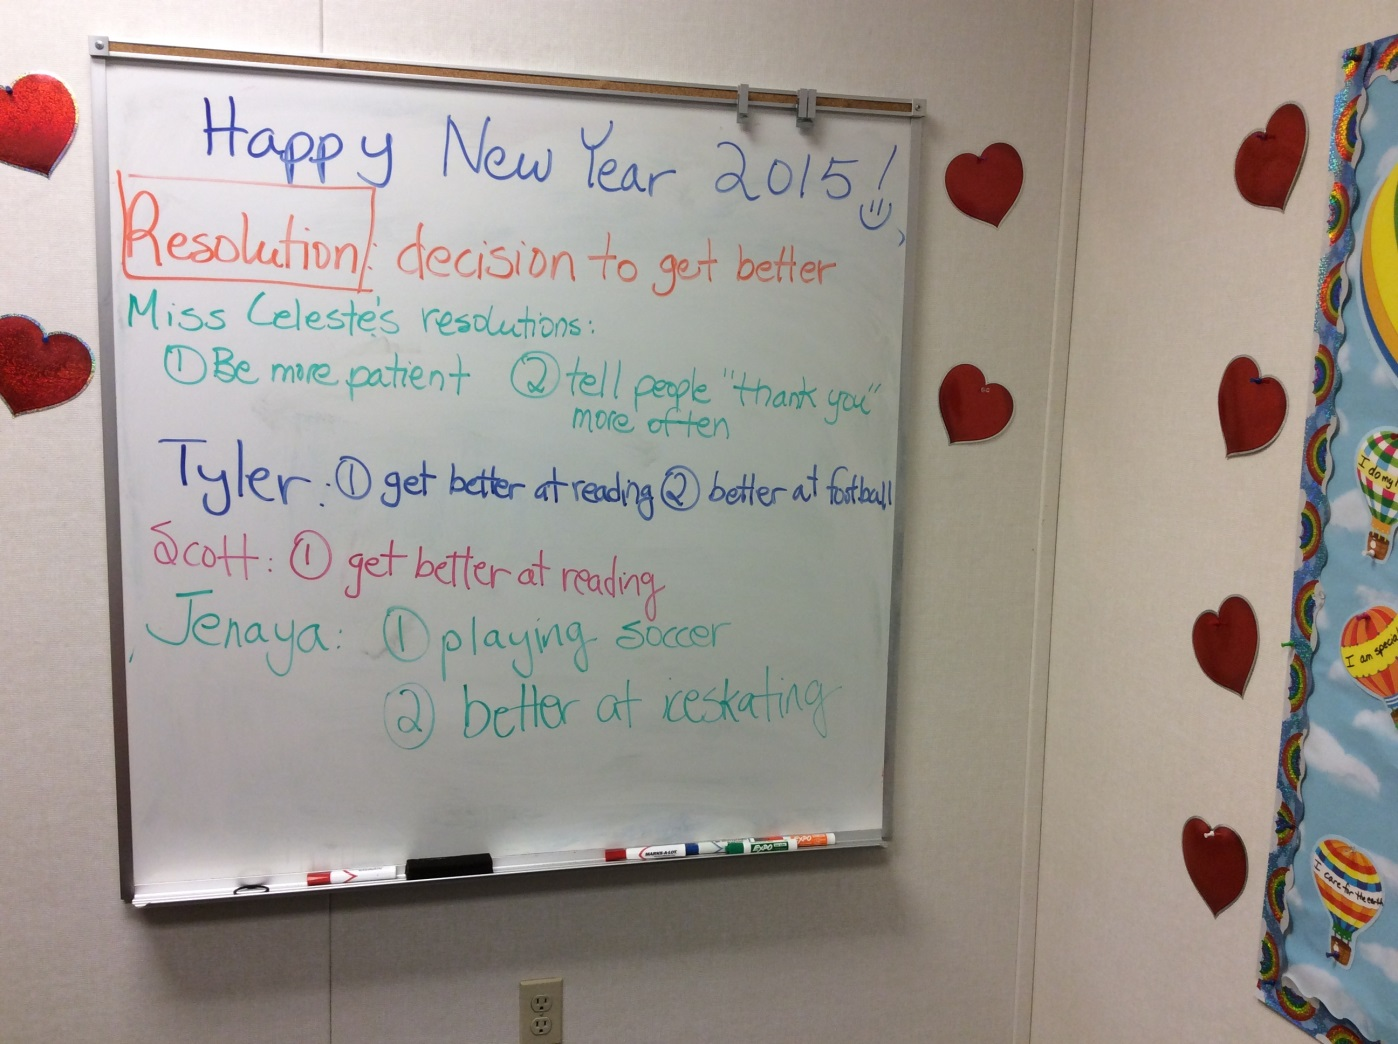 Happy New Year 2015!
Resolution: decision to get better
Miss Celeste's resolutions:
① Be more patient ② tell people "thank you"
more often
Tyler: ① get better at reading ② better at football
Scott: ① get better at reading
Jenaya: ① playing soccer
② better at iceskating
MARKS-A-LOT
EXPO
EXPO
I do my
I am special
I care for the earth